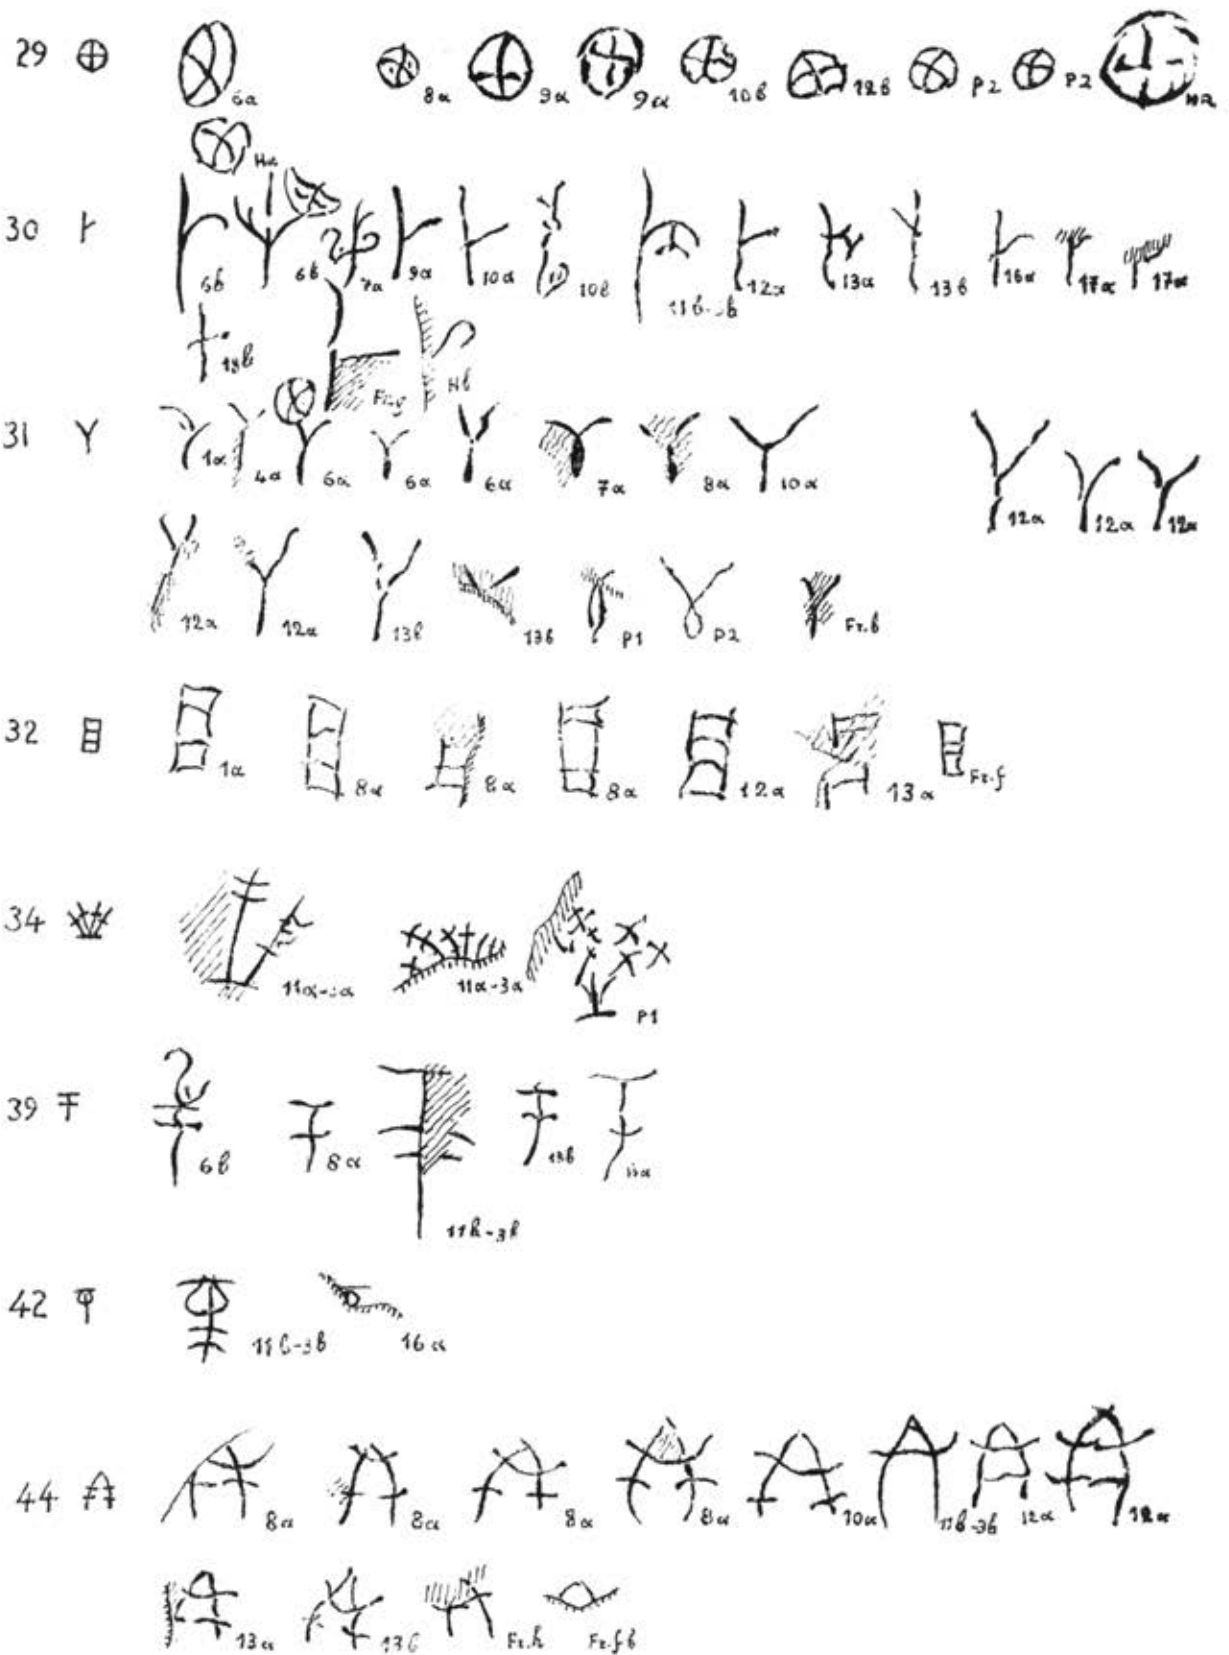 29 6α 8α 9α 9α 10b 12b P2 P2 HR
Ha
30 6b 6b 7α 9α 10α 10b 11b-3b 12α 13α 13b 16α 17α 17α
18b Fr.g Hb
31 1α 4α 6α 6α 6α 7α 8α 10α 12α 12α 12α
12α 12α 13b 13b P1 P2 Fr.b
32 1α 8α 8α 8α 12α 13α Fr.f
34 11α-3α 11α-3α P1
39 6b 8α 11b-3b 13b
42 11b-3b 16α
44 8α 8α 8α 8α 10α 11b-3b 12α 12α
13α 13b Fr.h Fr.fb